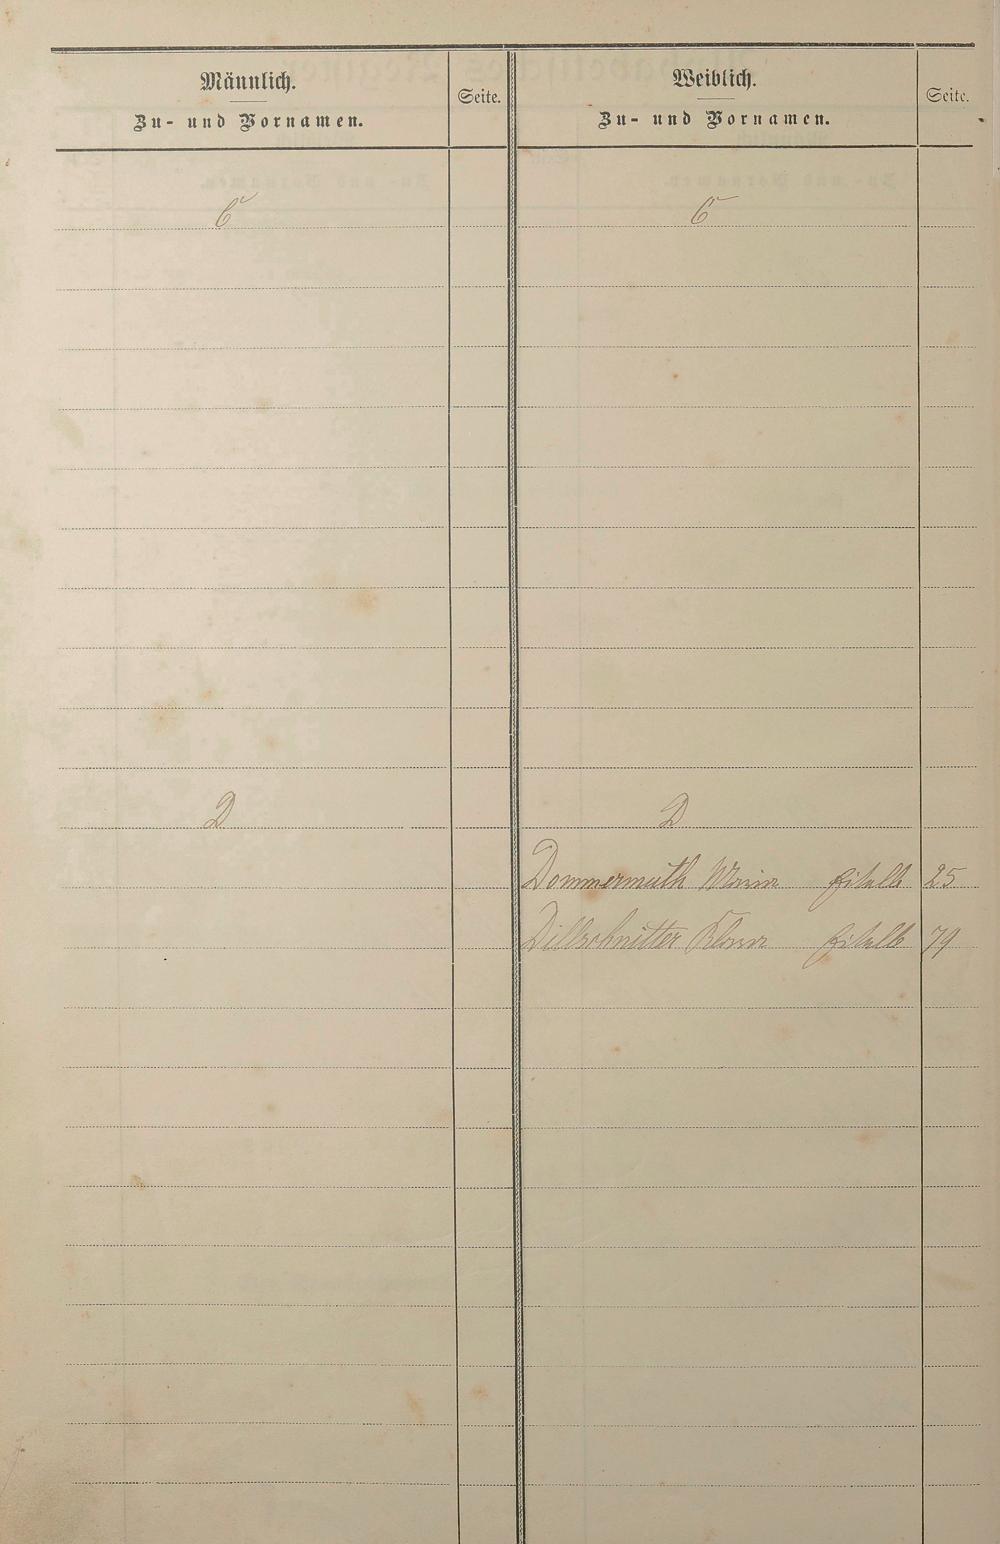 Männlich.
Zu- und Vornamen.
Seite.
Weiblich.
Zu- und Vornamen.
Seite.
C
C
D
D
Dommermuth Maria 25
Dillschnitter Klara 79